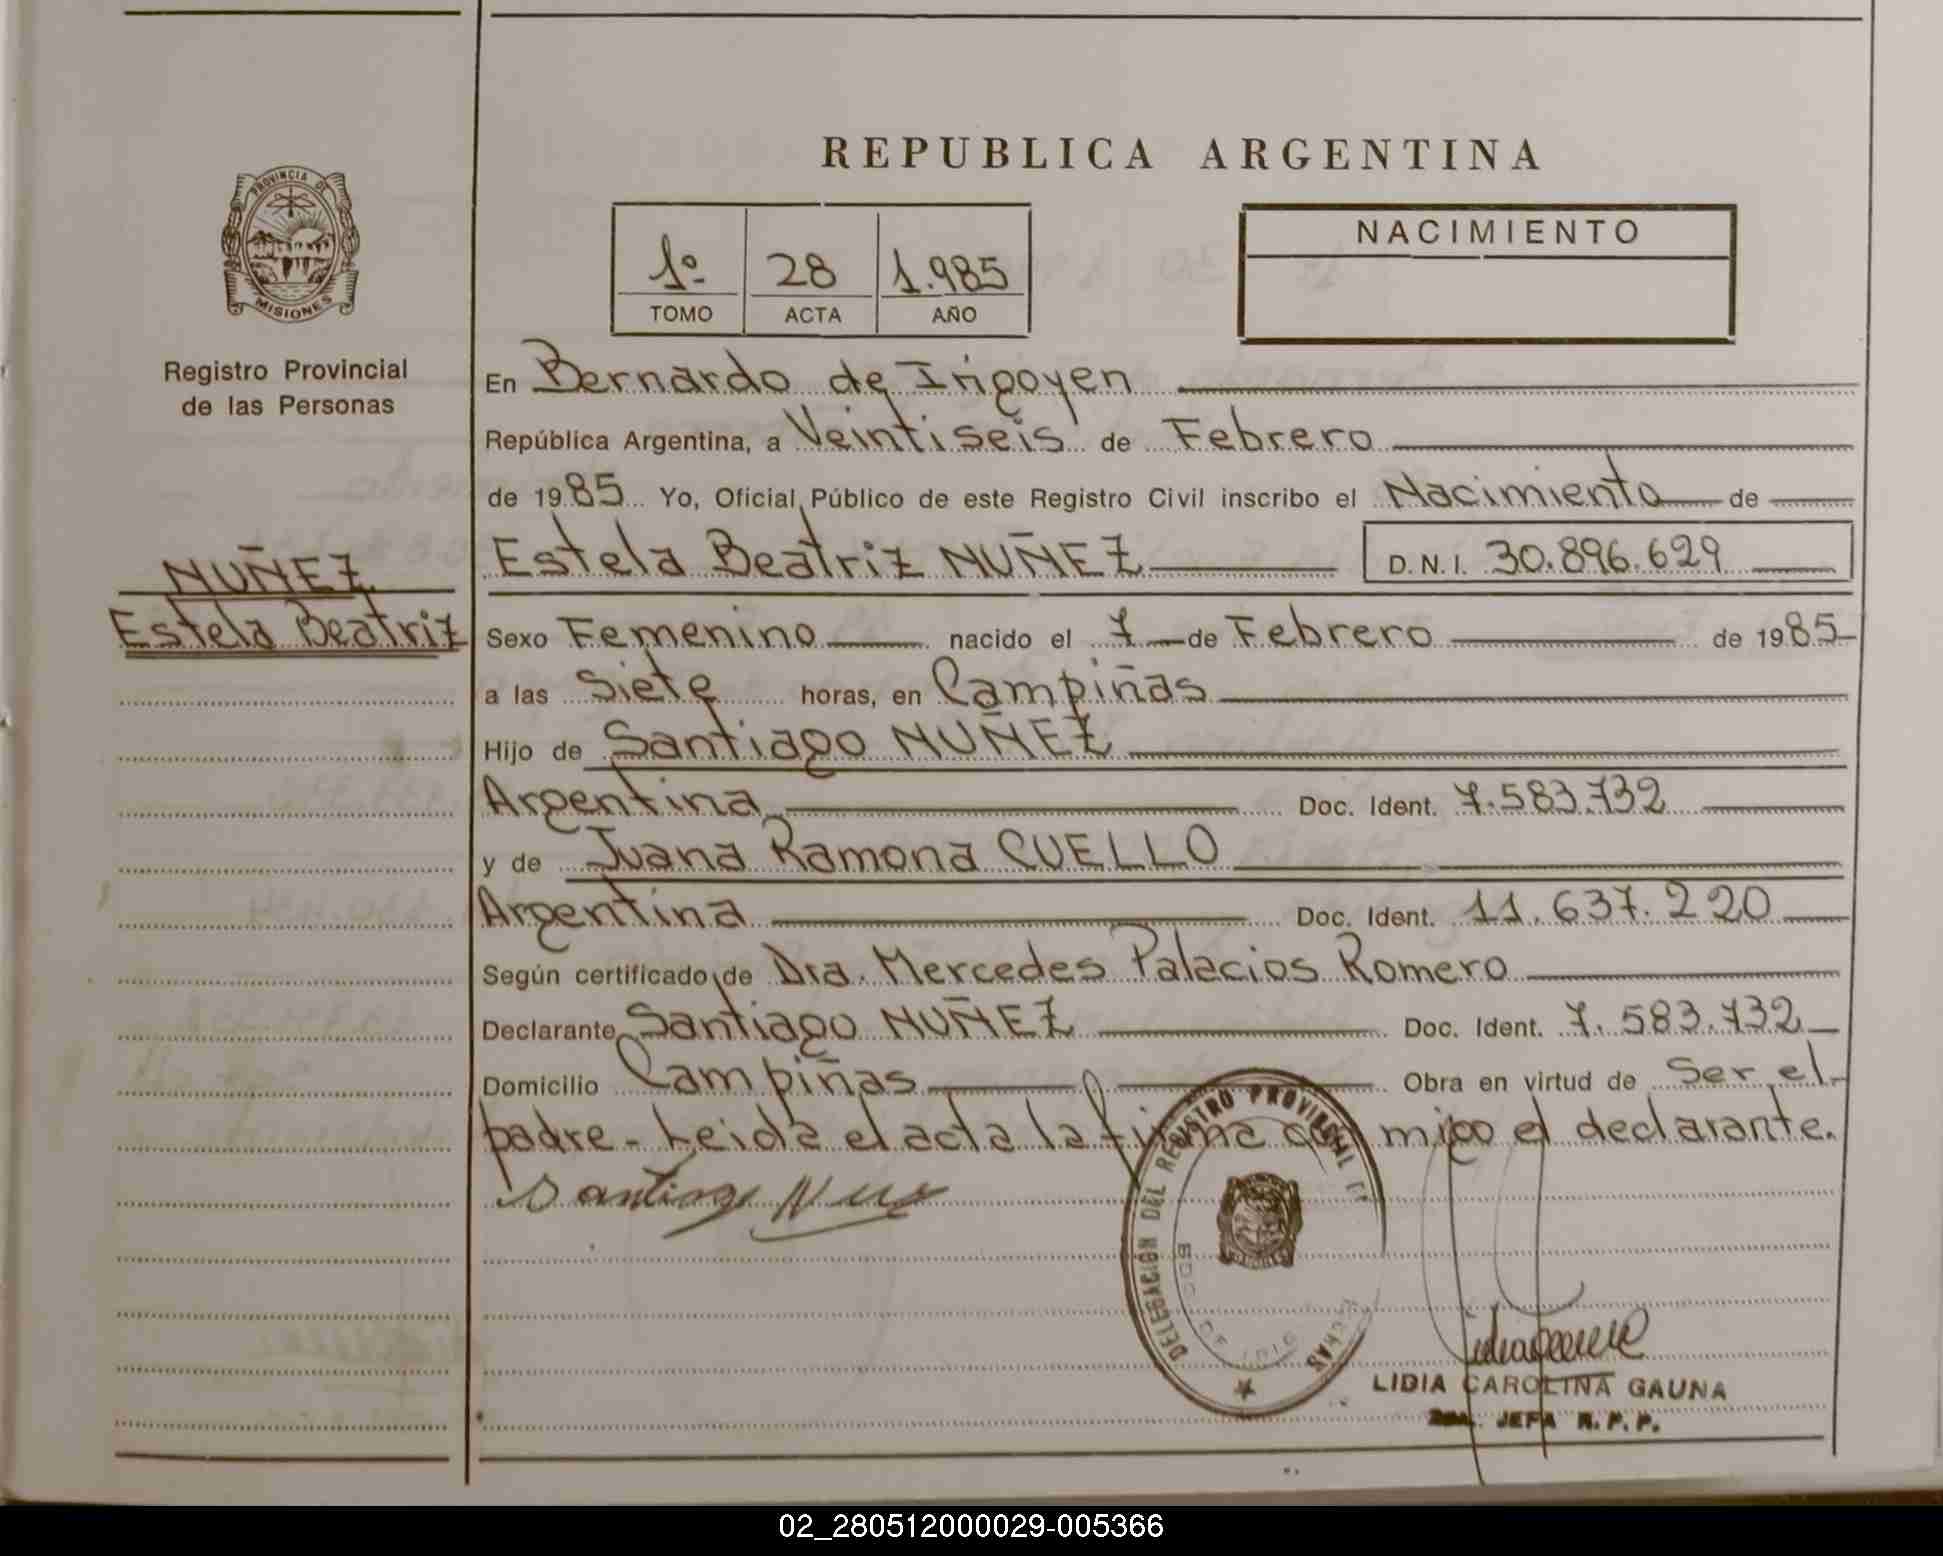 REPUBLICA ARGENTINA
PROVINCIA DE
MISIONES
Registro Provincial
de las Personas
1º 28 1.985
TOMO ACTA AÑO
NACIMIENTO
En Bernardo de Irigoyen
República Argentina, a Veintiseis de Febrero
de 1985 Yo, Oficial Público de este Registro Civil inscribo el Nacimiento de
Estela Beatriz NUÑEZ D.N.I. 30.896.629
NUÑEZ
Estela Beatriz
Sexo Femenino nacido el 7 de Febrero de 1985
a las Siete horas, en Campiñas
Hijo de Santiago NUÑEZ
Argentina Doc. Ident. 7.583.732
y de Juana Ramona CUELLO
Argentina Doc. Ident. 11.637.220
Según certificado de Dra. Mercedes Palacios Romero
Declarante Santiago NUÑEZ Doc. Ident. 7.583.732
Domicilio Campiñas Obra en virtud de Ser el
padre - Leida el acta la firma con migo el declarante.
Santiago Nuñez
DELEGACION DEL REGISTRO PROVINCIAL DE
LIDIA CAROLINA GAUNA
JEFA R.P.P.
02_280512000029-005366